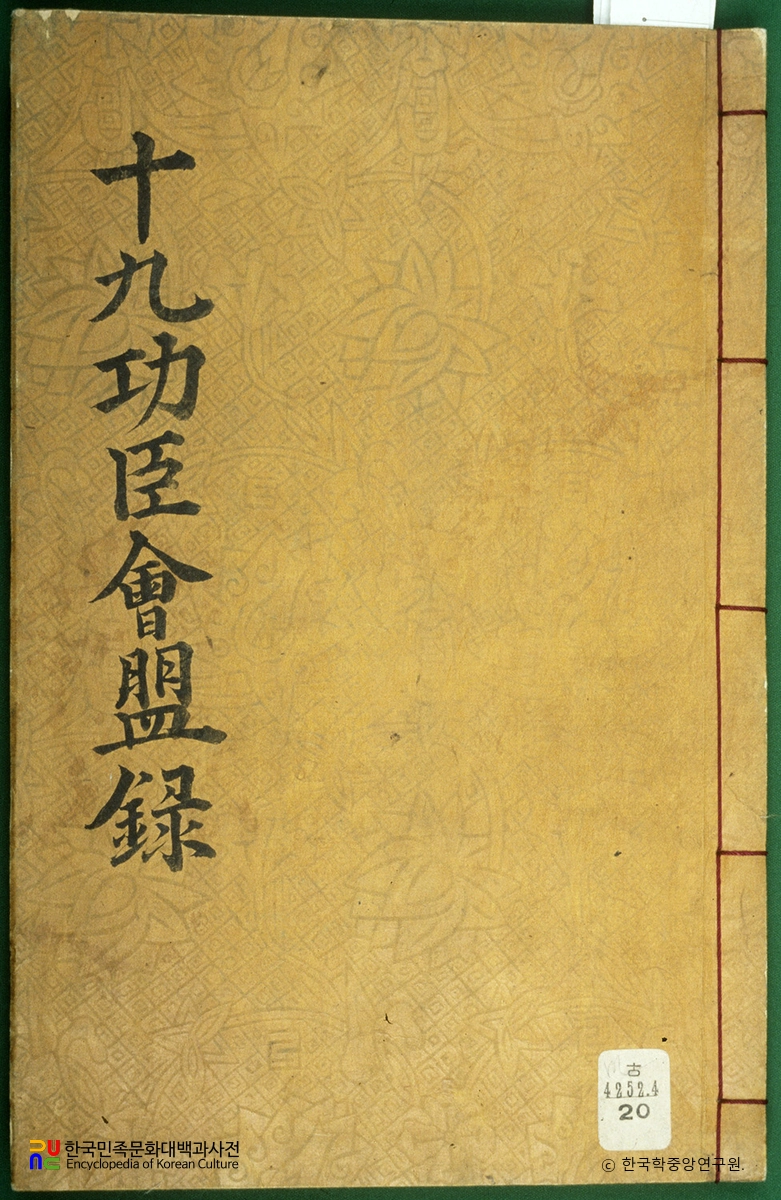 十九功臣會盟録
古
4252.4
20
한국민족문화대백과사전
Encyclopedia of Korean Culture
© 한국학중앙연구원.